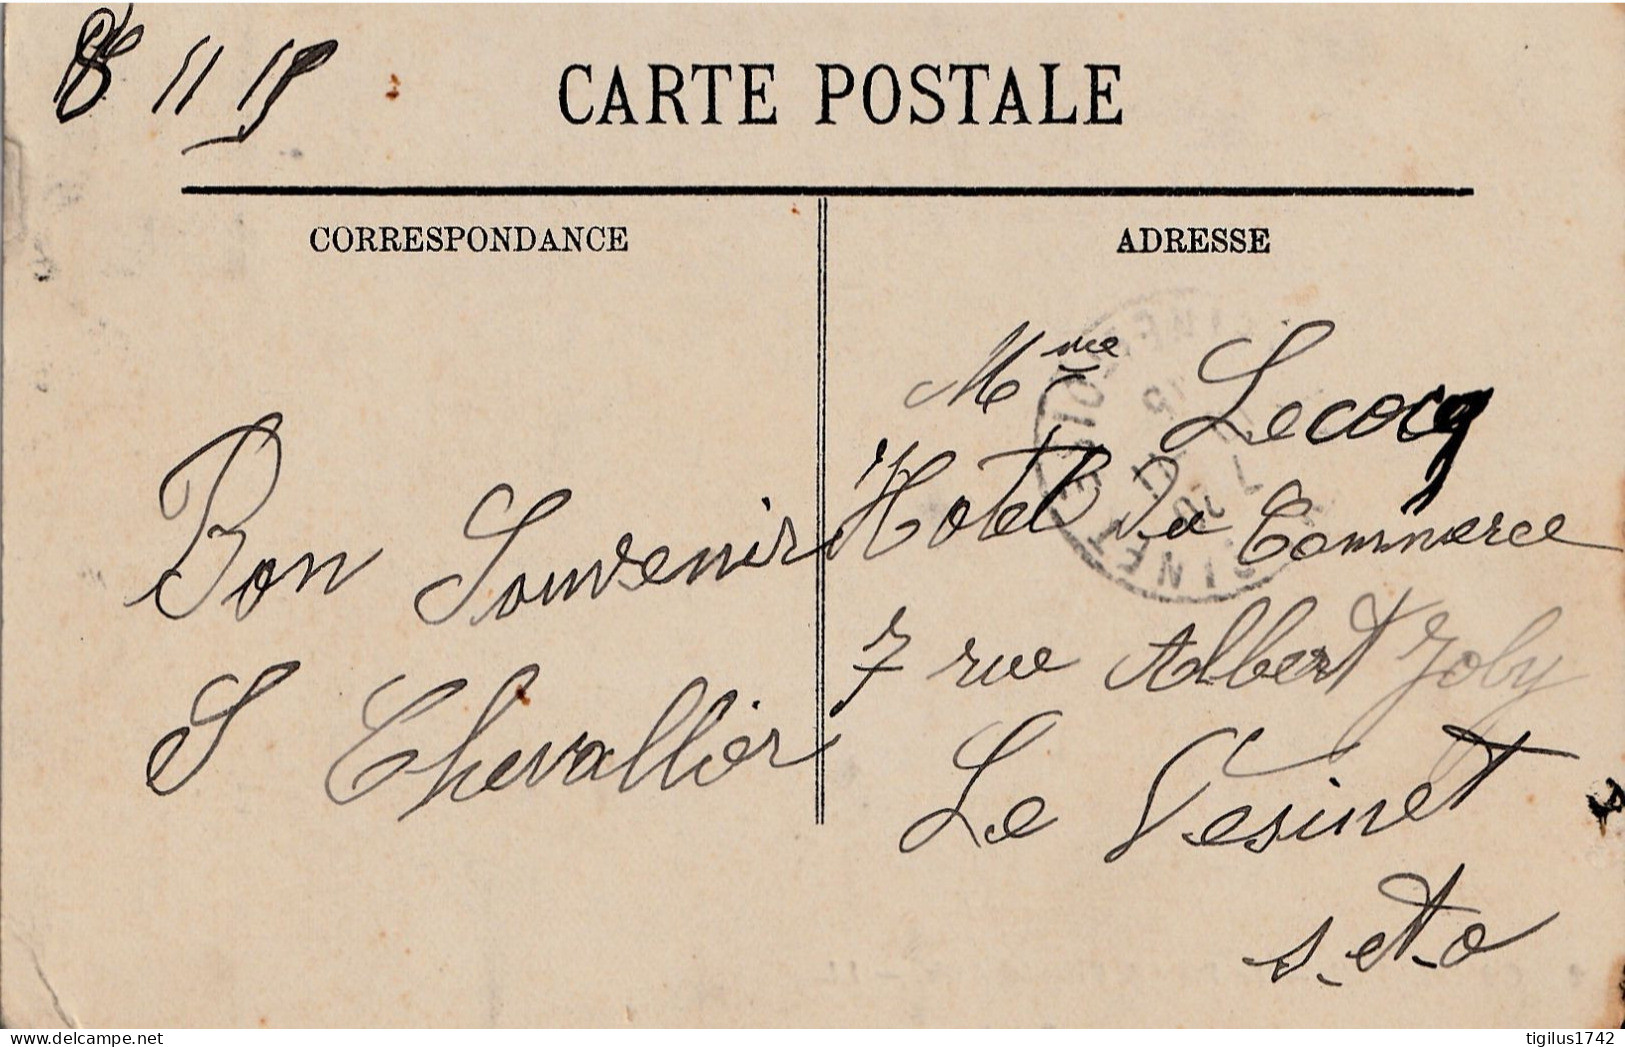 11
CARTE POSTALE
CORRESPONDANCE
ADRESSE
Mme Lecocq
Hotel Du Commerce
7 rue Albert Joly
Le Vesinet
s.et.o
Bon Souvenir
S Chevallier
tigilus1742